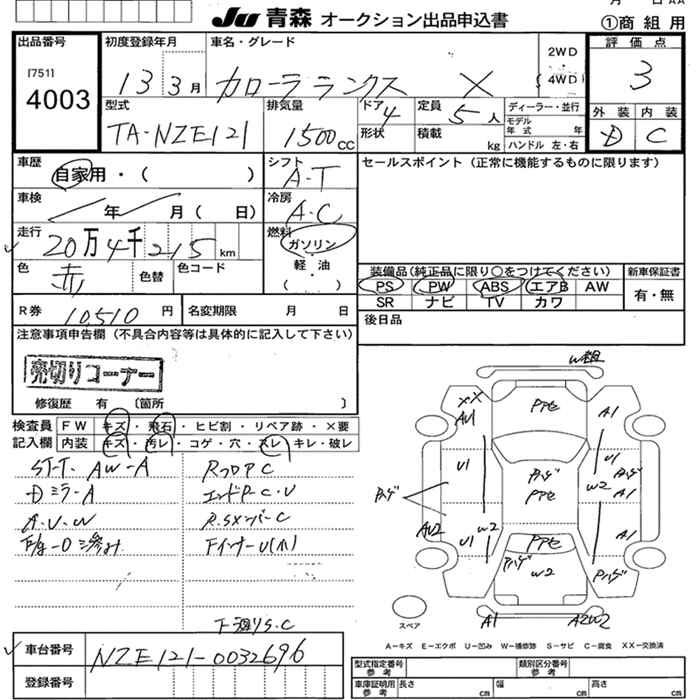 Ju 青森 オークション出品申込書
①商組用
出品番号
[751]
4003
初度登録年月
13 3月
車名・グレード
カローラランクス X
2WD
(4WD)
評価点
3
外装 内装
D C
型式
TA-NZE121
排気量
1500cc
ドア 4
形状
定員 5人
積載 kg
ディーラー・並行
モデル年式 年
ハンドル 左・右
車歴
自家用・( )
シフト
A-T
セールスポイント(正常に機能するものに限ります)
車検
年 月( 日)
冷房
A.C
走行
20万4千215km
燃料
ガソリン
・
軽・油
( )
色
赤
色替
色コード
装備品(純正品に限り○をつけてください)
PS PW ABS エアB AW
SR ナビ TV カワ
新車保証書
有・無
R券
10,510円
名変期限 月 日
後日品
注意事項申告欄(不具合内容等は具体的に記入して下さい)
売切りコーナー
修復歴 有 〔箇所 〕
検査員
記入欄
FW キズ・飛石・ヒビ割・リペア跡・×要
内装 キズ・汚レ・コゲ・穴・スレ・キレ・破レ
ST-T. AW-A
Dミラ-A
RフロアC
エンドP-C.U
R.SXンバ-C
Fインナ-U(小)
下廻りS.C
車台番号
NZE121-0032696
登録番号
W補
XX
AU1
PアセA1
U1
Pハゲ
Pアセ
U1
W2
Pハゲ
A1
Pハゲ
AU2
U1
W2
Pアセ
Pハゲ
W2
A1
Pハゲ
A1
A2W2
スペア
A-キズ E-エクボ U-凹み W-補修跡 S-サビ C-腐食 XX-交換済
型式指定番号
参考
類別区分番号
参考
車庫証明用
参考
長さ cm
幅 cm
高さ cm